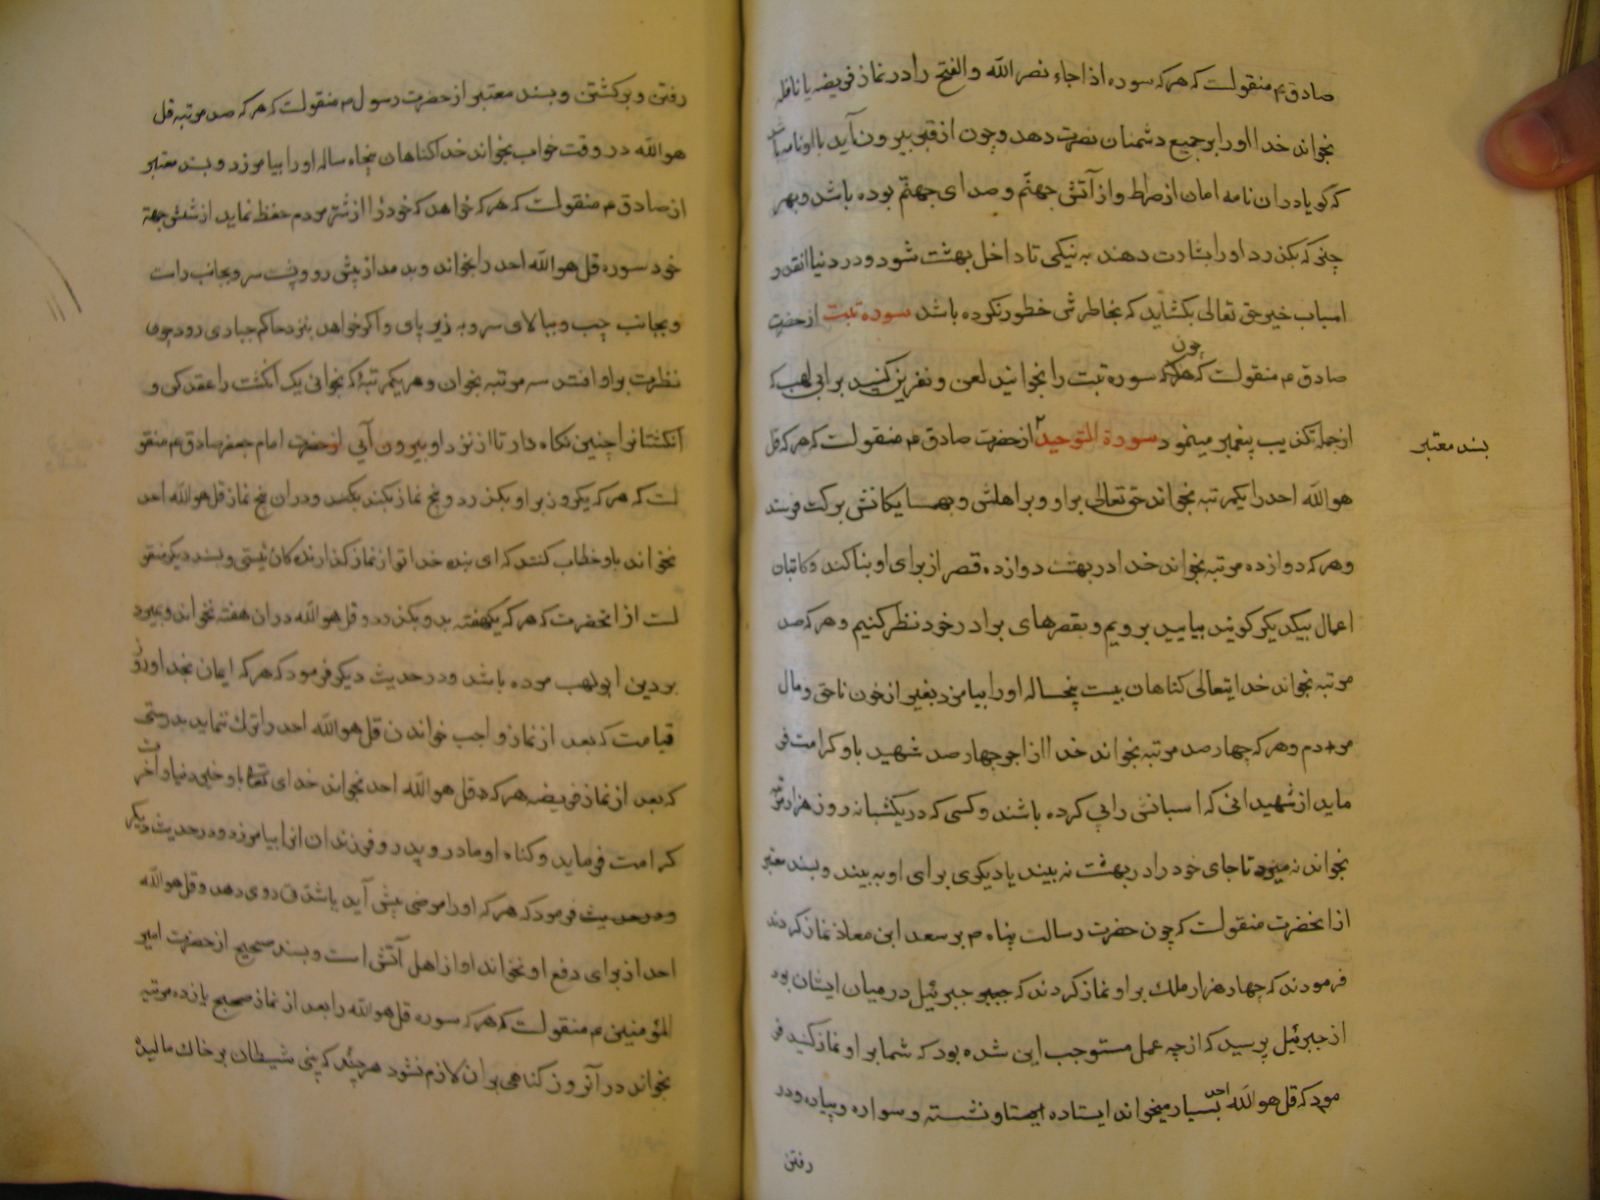 صادق ع منقولست که هر که سوره اذا جاء نصر الله والفتح را در نماز فریضه یا نافله
بخواند خدا او را بر جمیع دشمنان نصرت دهد و چون از قبر بیرون آید با او نامه باشد
که گویا در ان نامه امان از صراط و از آتش جهنّم و صدای جهنّم بوده باشد و بهر
چیز که بکذرد او را بشارت دهند به نیکی تا داخل بهشت شود و در دنیا انقدر
اسباب خیر حق تعالی بکشاید که بخاطرش خطور نکرده باشد سوره تبت از حضرت
صادق م منقولست که چون سوره تبت را بخوانید لعن و نفرین کنید بر ابی لهب که
از جمله تکذیب پیغمبر مینمود سورة التوحید از حضرت صادق م منقولست که هر که قل
بسند معتبر
هو الله احد را یکمرتبه بخواند حق تعالی بر او و بر اهلش و بهمسایکانش برکت فرستد
و هر که دوازده مرتبه بخواند خدا در بهشت دوازده قصر از برای او بنا کند و کاتبان
اعمال بیکدیکر کویند بیایید برویم و بقصرهای برادر خود نظر کنیم و هر که صد
مرتبه بخواند خدایتعالی کناهان بیست پنجساله او را بیامرزد بغیر از خون ناحق و مال
مردم و هر که چهار صد مرتبه بخواند خدا از اجر چهار صد شهید باو کرامت فر
ماید از شهیدانی که اسبانش را پی کرده باشند و کسی که در یکشبانه روز هزار مرتبه
بخواند نه میرد تا جای خود را در بهشت نه بیند یا دیکری برای او به بیند و بسند معتبر
از انحضرت منقولست که چون حضرت رسالت پناه م بر سعد ابن معاذ نماز کردند
فرمودند که چهار هزار ملک بر او نماز کردند که جبرئیل در میان ایشان بود
از جبرئیل پرسید که از چه عمل مستوجب این شده بود که شما بر او نماز کنید فر
مود که قل هو الله احد بسیار میخواند ایستاده و نشسته و سواره و پیاده و در
رفتن
رفتن و برکشتن و بسند معتبر از حضرت رسول م منقولست که هر که صد مرتبه قل
هو الله در وقت خواب بخواند خدا کناهان پنجاه ساله او را بیامرزد و بسند معتبر
از صادق م منقولست که هر که خواهد که خود را از شر مردم حفظ نماید از شش جهة
خود سوره قل هو الله احد را بخواند و بدمد از پیش رو و پشت سر و بجانب راست
و بجانب چپ و ببالای سر و به زیر پای و اکر خواهد بنزد حاکم جباری رود چون
نظرت بر او افتد سه مرتبه بخوان و هر یکمرتبۀ که بخوانی یک انکشت را عقد کن و
انکشتانرا چنین نکاه دار تا از نزد او بیرون آیی از حضرت امام جعفر صادق م منقو
لست که هر که یکروز بر او بکذرد و پنج نماز بکند و در ان پنج نماز قل هو الله احد
نخواند باو خطاب کنند که ای بنده خدا تو از نماز کذارندکان نیستی و بسند دیکر منقو
لست از انحضرت که هر که یکهفته بر او بکذرد و قل هو الله در ان هفته نخواند و بمیرد
بر دین ابولهب مرده باشد و در حدیث دیکر فرمود که هر که ایمان بخدا و روز
قیامت که بعد از نماز واجب خواندن قل هو الله احد را ترک ننماید بدرستی
که بعد از نماز فریضه هر که قل هو الله احد بخواند خدای تعا باو خیر دنیا و آخرت
کرامت فرماید و کناه او مادر و پدر و فرزندان انرا بیامرزد و در حدیث دیکر
و در حدیث فرمود که هر که او را مرضی پیش آید یا شدتی روی دهد و قل هو الله
احد از برای دفع او نخواند او از اهل آتش است و بسند صحیح از حضرت امیر
المؤمنین م منقولست که هر که سوره قل هو الله را بعد از نماز صبح یازده مرتبه
بخواند در آنروز کناهی بر ان لازم نشود هر چند که بینی شیطان بر خاک مالیده